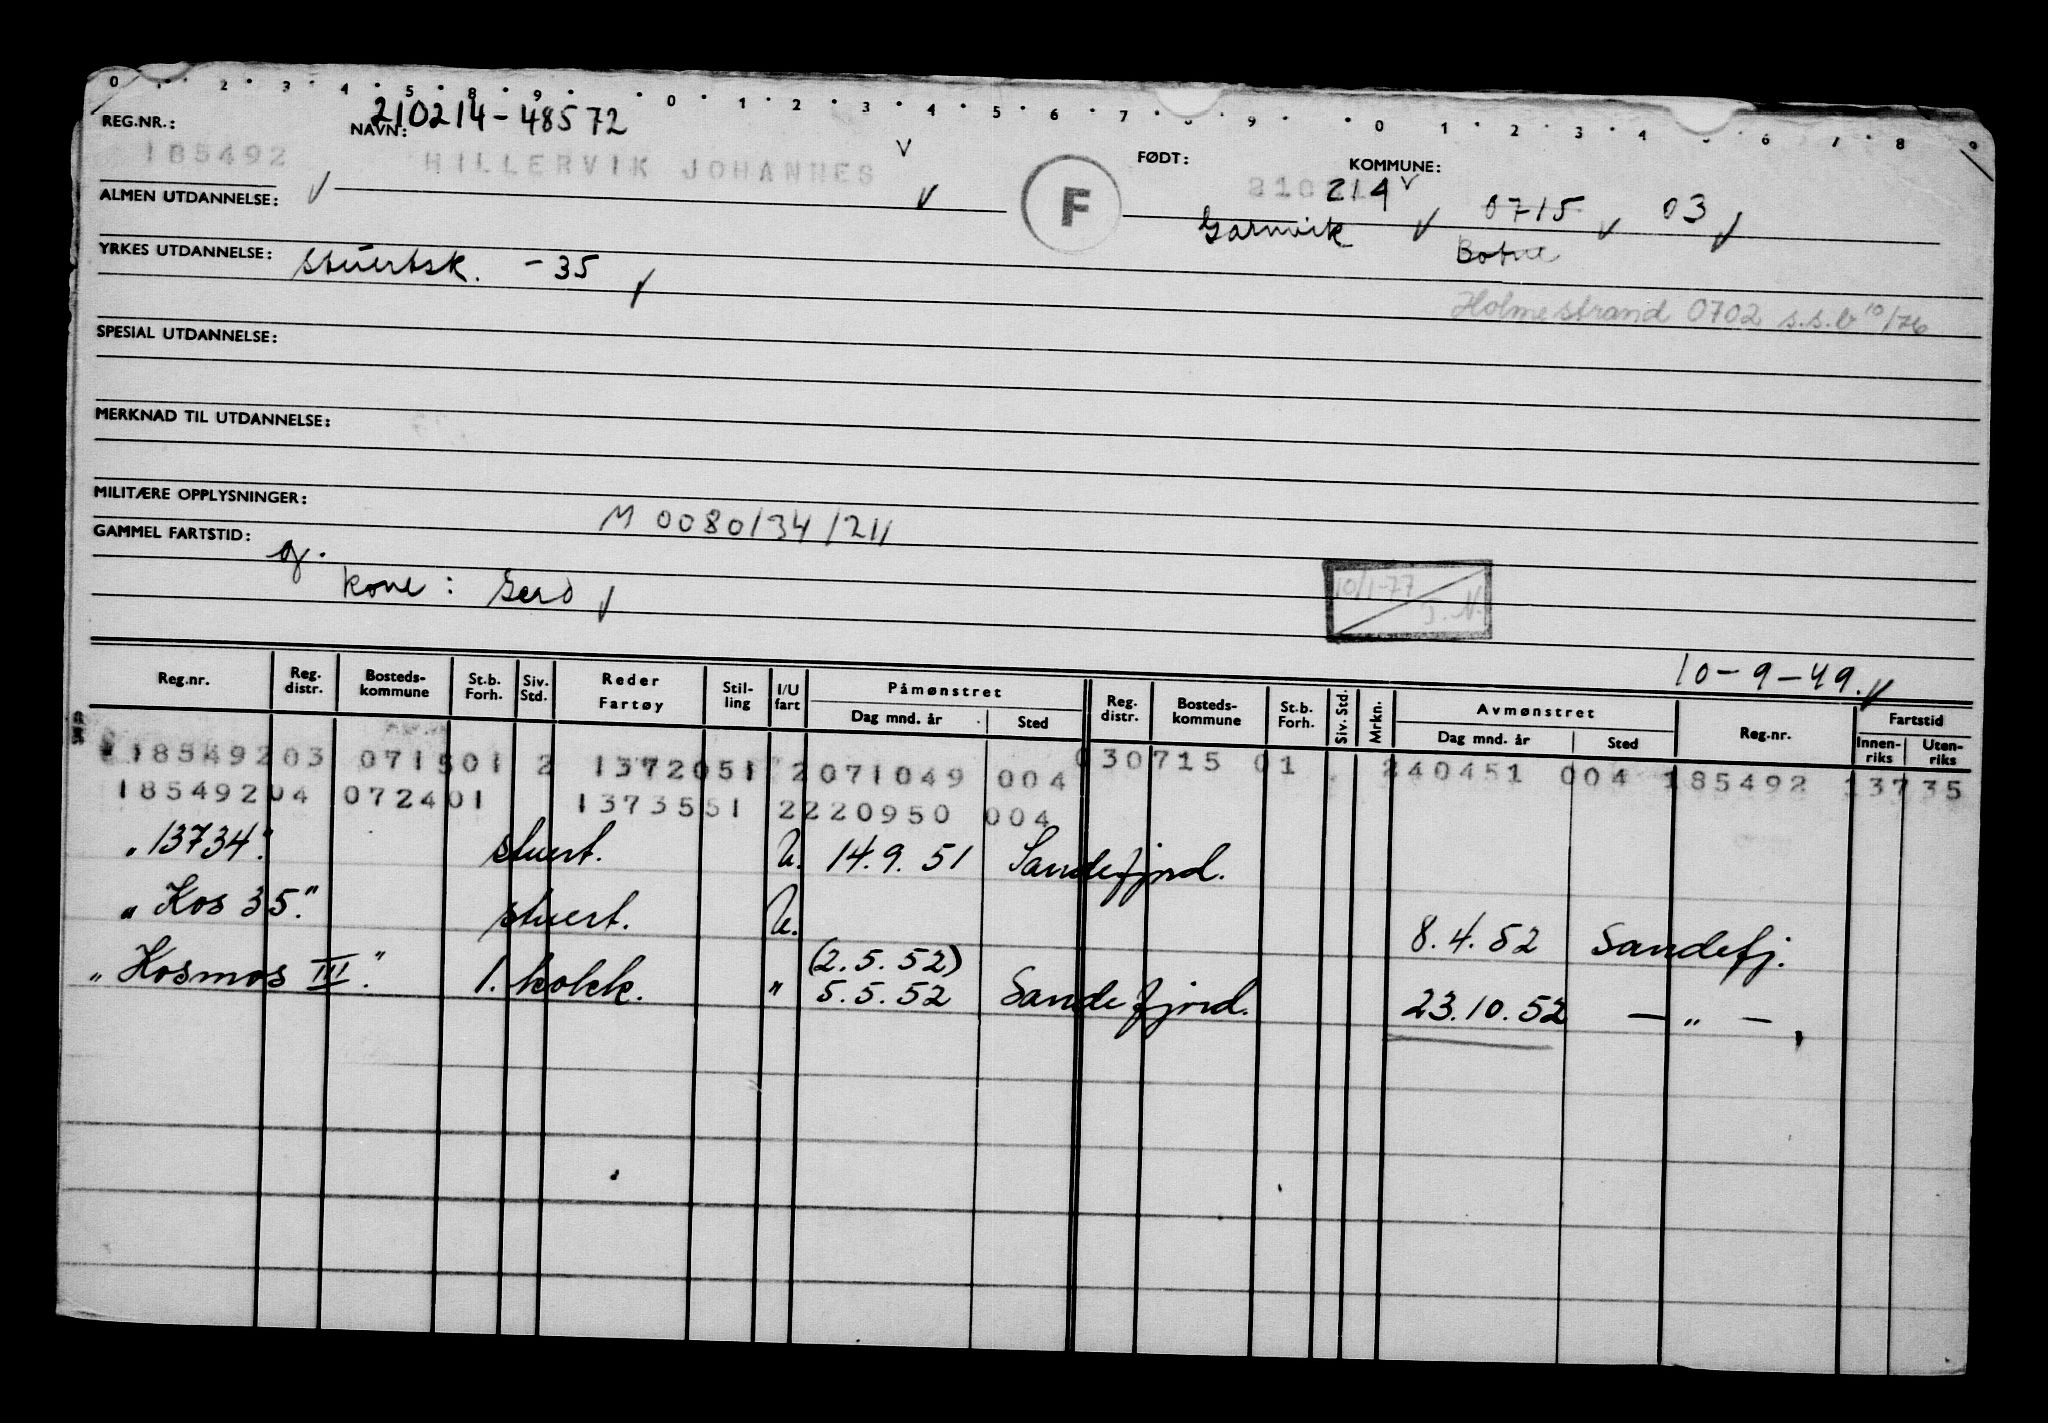 0 2 3 4 5 8 9 0 1 2 3 4 5 6 7 8 9 0 1 2 3 4 5 6 7 8 9
210214-48572
REG.NR.: NAVN: FØDT: KOMMUNE:
185492 HILLERVIK JOHANNES 21021 214 0715 03
F
ALMEN UTDANNELSE: Garnvik Botne
YRKES UTDANNELSE: stuertsk. -35
Holmestrand 0702 s.s.b 10/76
SPESIAL UTDANNELSE:
MERKNAD TIL UTDANNELSE:
MILITÆRE OPPLYSNINGER: M 0080/34/211
GAMMEL FARTSTID:
kone: Gerd
10/1-77
J.N.
10-9-49.
Reg.nr. Reg. distr. Bosteds-kommune St.b. Forh. Siv. Std. Reder Fartøy Stil-ling I/U fart Påmønstret Dag mnd. år Sted Reg. distr. Bosteds-kommune St.b. Forh. Siv. Std. Mrkn. Avmønstret Dag mnd. år Sted Reg.nr. Fartstid Innen-riks Uten-riks
185492 03 0715 01 2 13720 51 2 071049 004 03 0715 01 240451 004 185492 13735
185492 04 0724 01 13735 51 2 220950 004
"13734." stuert. U. 14.9.51 Sandefjord.
"Kos 35." stuert. U. 8.4.52 Sandefj.
(2.5.52)
"Kosmos III." 1. kokk. " 5.5.52 Sandefjord. 23.10.52 — " —